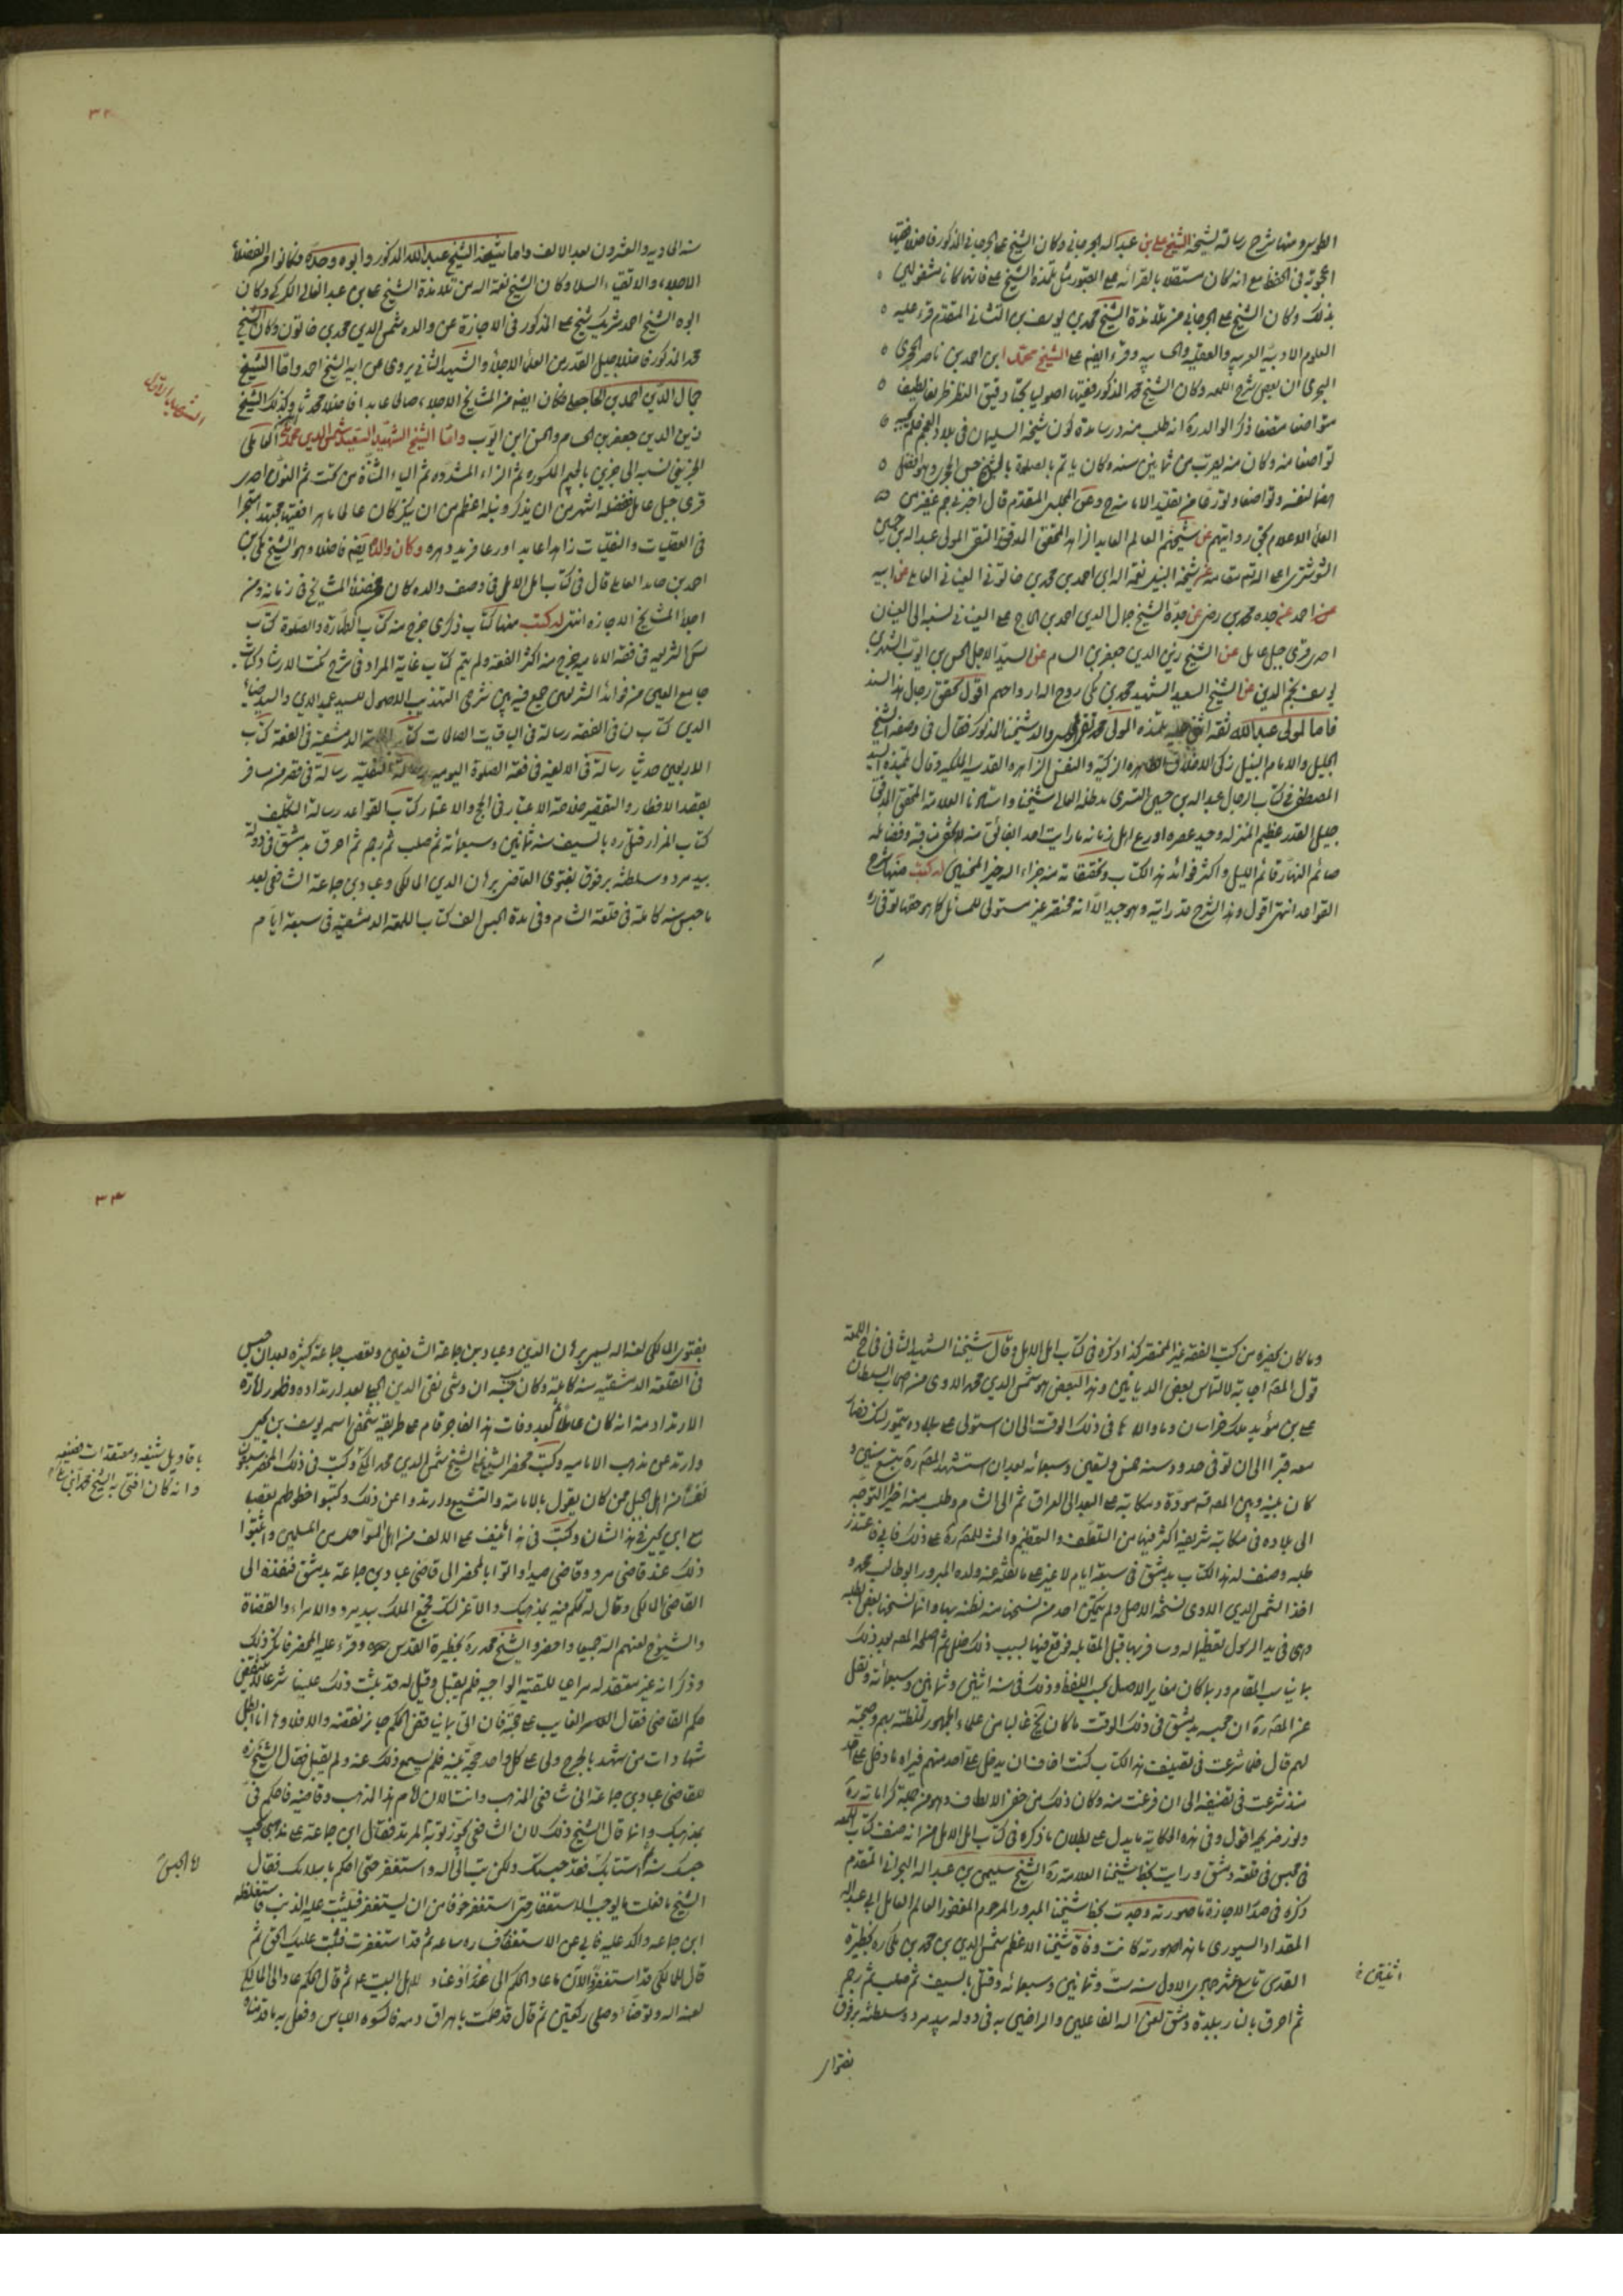 الطوس ومنها شرح رسالة لشيخه الشيخ علي بن عبد الله الجرجاني وكان الشيخ علي الجرجاني المذكور فاضلا فقيها
في الحفظ مع انه كان مستقلا بالقرائة على القبور مثل تلمذه الشيخ علي فانهما كانا مشغولين
بذلك وكان الشيخ علي الجرجاني من تلامذة الشيخ محمد بن يوسف بن المتقدم قرء عليه
العلوم الادبية العربية والعقلية وقرء ايضا على الشيخ محمد ابن احمد بن ناصر الحجري
البحراني بعض شرح اللمعه وكان الشيخ محمد المذكور فقيها اصوليا دقيق النظر ظريفا لطيف
متواضعا منصفا ذكر الوالد ره انه طلب منه درسا مدة كون شيخه الشيخ سليمان في بلاد العجم فلم
تواضعا منه وكان منه يقرب من ثمانين سنه وكان ياتم بالصلوة بالشيخ حسن
هضما لنفسه وتواضعا وتورعا من تقليد الامامة ح وعن المجلسي المتقدم قال اخبرني جم غفير من
العلماء الاعلام بحق روايتهم عن شيخهم العالم العابد الزاهد المحقق المدقق التقي المولى عبد الله بن حسين
الشوشتري اعلى الله مقامه عن شيخه النبيل نعمة الله ابي احمد بن محمد بن خاتون العيناثي العاملي عن ابيه
عن احمد عن جده محمد بن عن جده الشيخ جمال الدين احمد بن الحاج علي العيناثي نسبة الى العيناث
احدى قرى جبل عامل عن الشيخ زين الدين جعفر بن الحسام عن السيد الاجل الحسن بن ايوب الشهير بابن
نجم الدين عن الشيخ السعيد الشهيد محمد بن مكي روح الله ارواحهم اقول تحقق رجال هذا السند
فاما المولى عبد الله ثقة اثنى عليه تلميذه المولى محمد تقي المجلسي والد شيخنا المذكور فقال في وصفه الشيخ
الجليل والامام النبيل زكي الاخلاق الطاهره الزكية والنفس الزاهره القدسية الملكيه وقال تلميذه السيد
المصطفى في كتاب الرجال عبد الله بن حسين التستري مد ظله العالي شيخنا واستادنا العلامة المحقق المدقق
جليل القدر عظيم المنزله وحيد عصره اورع اهل زمانه ما رايت احدا اوثق منه لا تحصى مناقبه وفضائله
صائم النهار قائم الليل واكثر فوائد هذا الكتاب وتحقيقاته منه جزاه الله خير الجزاء المحسنين له كتب منها شرح
القواعد انتهى اقول وهذا الشرح قد رايته وهو جيد الا انه مختصر غير مستوفي للمسائل كما هو حقها توفي ره
سنه الحاديه والعشرون بعد الالف واما شيخه الشيخ عبد الله المذكور وابوه وجده فكانوا من الفضلاء
الاجلاء والاتقياء النبلا وكان الشيخ نعمة الله من تلامذة الشيخ علي بن عبد العالي الكركي وكان
ابوه الشيخ احمد شريك الشيخ علي المذكور في الاجازة عن والده شمس الدين محمد بن خاتون وكان الشيخ
محمد المذكور فاضلا جليل القدر من العلماء الاجلاء والشهيد الثاني يروي عن ابيه الشيخ احمد واما الشيخ
جمال الدين احمد بن الحاج علي فكان ايضا من المشايخ الاجلاء صالحا عابدا فاضلا محدثا وكذلك الشيخ
زين الدين جعفر بن الحسام والحسن ابن ايوب واما الشيخ الشهيد السعيد شمس الدين محمد بن مكي العاملي
الجزيني نسبه الى جزين بالجيم المكسوره ثم الزاء المشدده ثم الياء المثناة من تحت ثم النون احدى
قرى جبل عامل ففضله اشهر من ان يذكر ونبله اعظم من ان ينكر كان عالما ماهرا فقيها مجتهدا متبحرا
في العقليات والنقليات زاهدا عابدا ورعا فريد دهره وكان والده ايضا فاضلا وهو الشيخ مكي بن
احمد بن حامد العاملي قال في كتاب امل الامل في وصف والده كان من فضلاء المشايخ في زمانه ومن
اجلاء المشايخ الاجازه انتهى له كتب منها كتاب ذكرى خرج منه كتاب الطهارة والصلوة كتاب
الدروس الشرعيه في فقه الاماميه خرج منه اكثر الفقه ولم يتم كتاب غاية المراد في شرح نكت الارشاد كتاب
جامع البين من فوائد الشرحين جمع فيه بين شرحي التهذيب الاصول للسيد عميد الدين والسيد ضياء
الدين كتاب البيان في الفقه رسالة في الباقيات الصالحات كتاب اللمعة الدمشقيه في الفقه كتاب
الاربعين حديثا رسالة الالفيه في فقه الصلوة اليوميه رسالة النفليه رسالة في قصر من سافر
بقصد الافطار والتقصير خلاصة الاعتبار في الحج والاعتمار كتاب القواعد رسالة التكليف
كتاب المزار قتل ره بالسيف سنه ثمانين وسبعمائة ثم صلب ثم رجم ثم احرق بدمشق في دولة
بيدمر وسلطنة برقوق بفتوى القاضي برهان الدين المالكي وعباد بن جماعة الشافعي بعد
ما حبس سنه كاملة في قلعة الشام وفي مدة الحبس الف كتاب اللمعة الدمشقيه في سبعة ايام
وما كان يحضره من كتب الفقه غير المختصر كذا ذكره في كتاب امل الامل وقال شيخنا الشهيد الثاني في شرح اللمعه
قول المصنف اجابة لالتماس بعض الديانين وهذا البعض هو شمس الدين محمد الاوي من اصحاب السلطان
علي بن مؤيد ملك خراسان وما والاها في ذلك الوقت الى ان استولى على بلاده تيمور لنك
معه قهرا الى ان توفي في حدود سنه خمس وتسعين وسبعمائه بعد ان استشهد المصنف ره بتسع سنين و
كان بينه وبين المصنف مودة ومكاتبة على البعد الى العراق ثم الى الشام وطلب منه اخيرا التوجه
الى بلاده في مكاتبة شريفه اكثر فيها من التلطف والتعظيم والحث للمصنف ره على ذلك فابى واعتذر
طلبه وصنف له هذا الكتاب بدمشق في سبعة ايام لا غير على ما نقله عنه ولده المبرور ابو طالب محمد و
اخذ الشمس الدين الاوي نسخة الاصل ولم يتمكن احد من نسخها منه لضنته بها وانما نسخها بعض الطلبه
وهي في يد الرسول تعظيما له وسافر بها قبل المقابله فوقع فيها بسبب ذلك خلل ثم اصلحه المصنف بعد ذلك
بما يناسب المقام وربما كان مغاير الاصل بحسب اللفظ وذلك في سنه اثنين وثمانين وسبعمائه ونقل
عن المصنف ره ان مجلسه بدمشق في ذلك الوقت ما كان يخلو غالبا من علماء الجمهور لخلطته بهم وصحبته
لهم قال فلما شرعت في تصنيف هذا الكتاب كنت اخاف ان يدخل علي احد منهم فيراه فما دخل علي احد
منذ شرعت في تصنيفه الى ان فرغت منه وكان ذلك من خفي الالطاف وهو من جملة كراماته ره
ونور ضريحه اقول وفي هذه الحكاية ما يدل على بطلان ما ذكره في كتاب امل الامل من انه صنف كتاب اللمعه
في الحبس في قلعة دمشق ورايت بخط شيخنا العلامة ره الشيخ سليمان بن عبد الله البحراني المتقدم
ذكره في صدر الاجازة ما صورته وجدت بخط شيخنا المبرور المرحوم المغفور العالم العامل ابي عبد الله
المقداد السيوري ما هذا صورته كانت وفاة شيخنا الاعظم شمس الدين بن محمد بن مكي ره بحظيرة
القدس تاسع عشر جمادى الاول سنه ست وثمانين وسبعمائه وقتل بالسيف ثم صلب ثم رجم
ثم احرق بالنار ببلدة دمشق لعن الله الفاعلين والراضين به في دولة بيدمر وسلطنة برقوق
بفتوى
اثنين
٣٣
بفتوى المالكي لعنه الله يسمى برهان الدين وعباد بن جماعة الشافعي وتعصب جماعة كثيره بعد ان حبس
في القلعة الدمشقيه سنه كاملة وكان حبسه ان وشى تقي الدين الجبلي بعد ارتداده وظهور امارة
الارتداد منه انه كان عاملا ثم بعد وفات هذا الفاجر قام على طريقة شخص اسمه يوسف بن يحيى
وارتد عن مذهب الاماميه وكتب محضرا يشنع على الشيخ شمس الدين محمد بن مكي وكتب في ذلك المحضر سبعون
نفسا من اهل الجبل ممن كان يقول بالامامة والتشيع وارتدوا عن ذلك وكتبوا خطوطهم تعصبا
مع ابن يحيى في هذا الشان وكتب في هذا ما ينيف على الالف من اهل السواحل من المسلمين واثبتوا
ذلك عند قاضي بيروت وقاضي صيدا واتوا بالمحضر الى قاضي عباد بن جماعة بدمشق فنفذه الى
القاضي المالكي وقال له تحكم فيه بمذهبك والا عزلتك فجمع الملك بيدمر والامراء والقضاة
والشيوخ لعنهم الله جميعا واحضروا الشيخ محمد ره بحظيرة القدس وقرء عليه المحضر فانكر ذلك
وذكر انه غير معتقد له مراعيا للتقية الواجبه فلم يقبل وقيل له قد ثبت ذلك عليك شرعا لا ينتقض
حكم القاضي فقال الغايب على حجته فان اتى بما يناقض الحكم جاز نقضه والا فلا وها انا ابطل
شهادات من شهد بالجرح ولي على كل واحد حجة بينه فلم يسمع ذلك منه ولم يقبل فقال الشيخ ره
للقاضي عباد بن جماعه اني شافعي المذهب وانت الان امام هذا المذهب وقاضيه فاحكم في
بمذهبك وانما قال الشيخ ذلك لان الشافعي يجوز توبة المرتد فقال ابن جماعة على مذهبي يجب
حبسك سنة ثم استتابك فقد حبست ولكن تب الى الله واستغفر حتى احكم باسلامك فقال
الشيخ ما فعلت ما يوجب الاستغفار حتى استغفر خوفا من ان يستغفر فيثبت عليه الذنب فاستغلظه
ابن جماعه واكد عليه فابى عن الاستغفار فساره ساعه ثم قال قد استغفرت فثبت عليك الحق ثم
قال للمالكي قد استغفر والآن ما عاد الحكم الي غدرا وعنادا لاهل البيت ع ثم قال الحكم عاد الى المالكي
لعنه الله وتوضا وصلى ركعتين ثم قال قد حكمت باهراق دمه فاكسوه اللباس وفعل به ما قدمناه
باقاويل شنيعه ومعتقدات فضيعه
وانه كان افتى به الشيخ محمد بن مكي